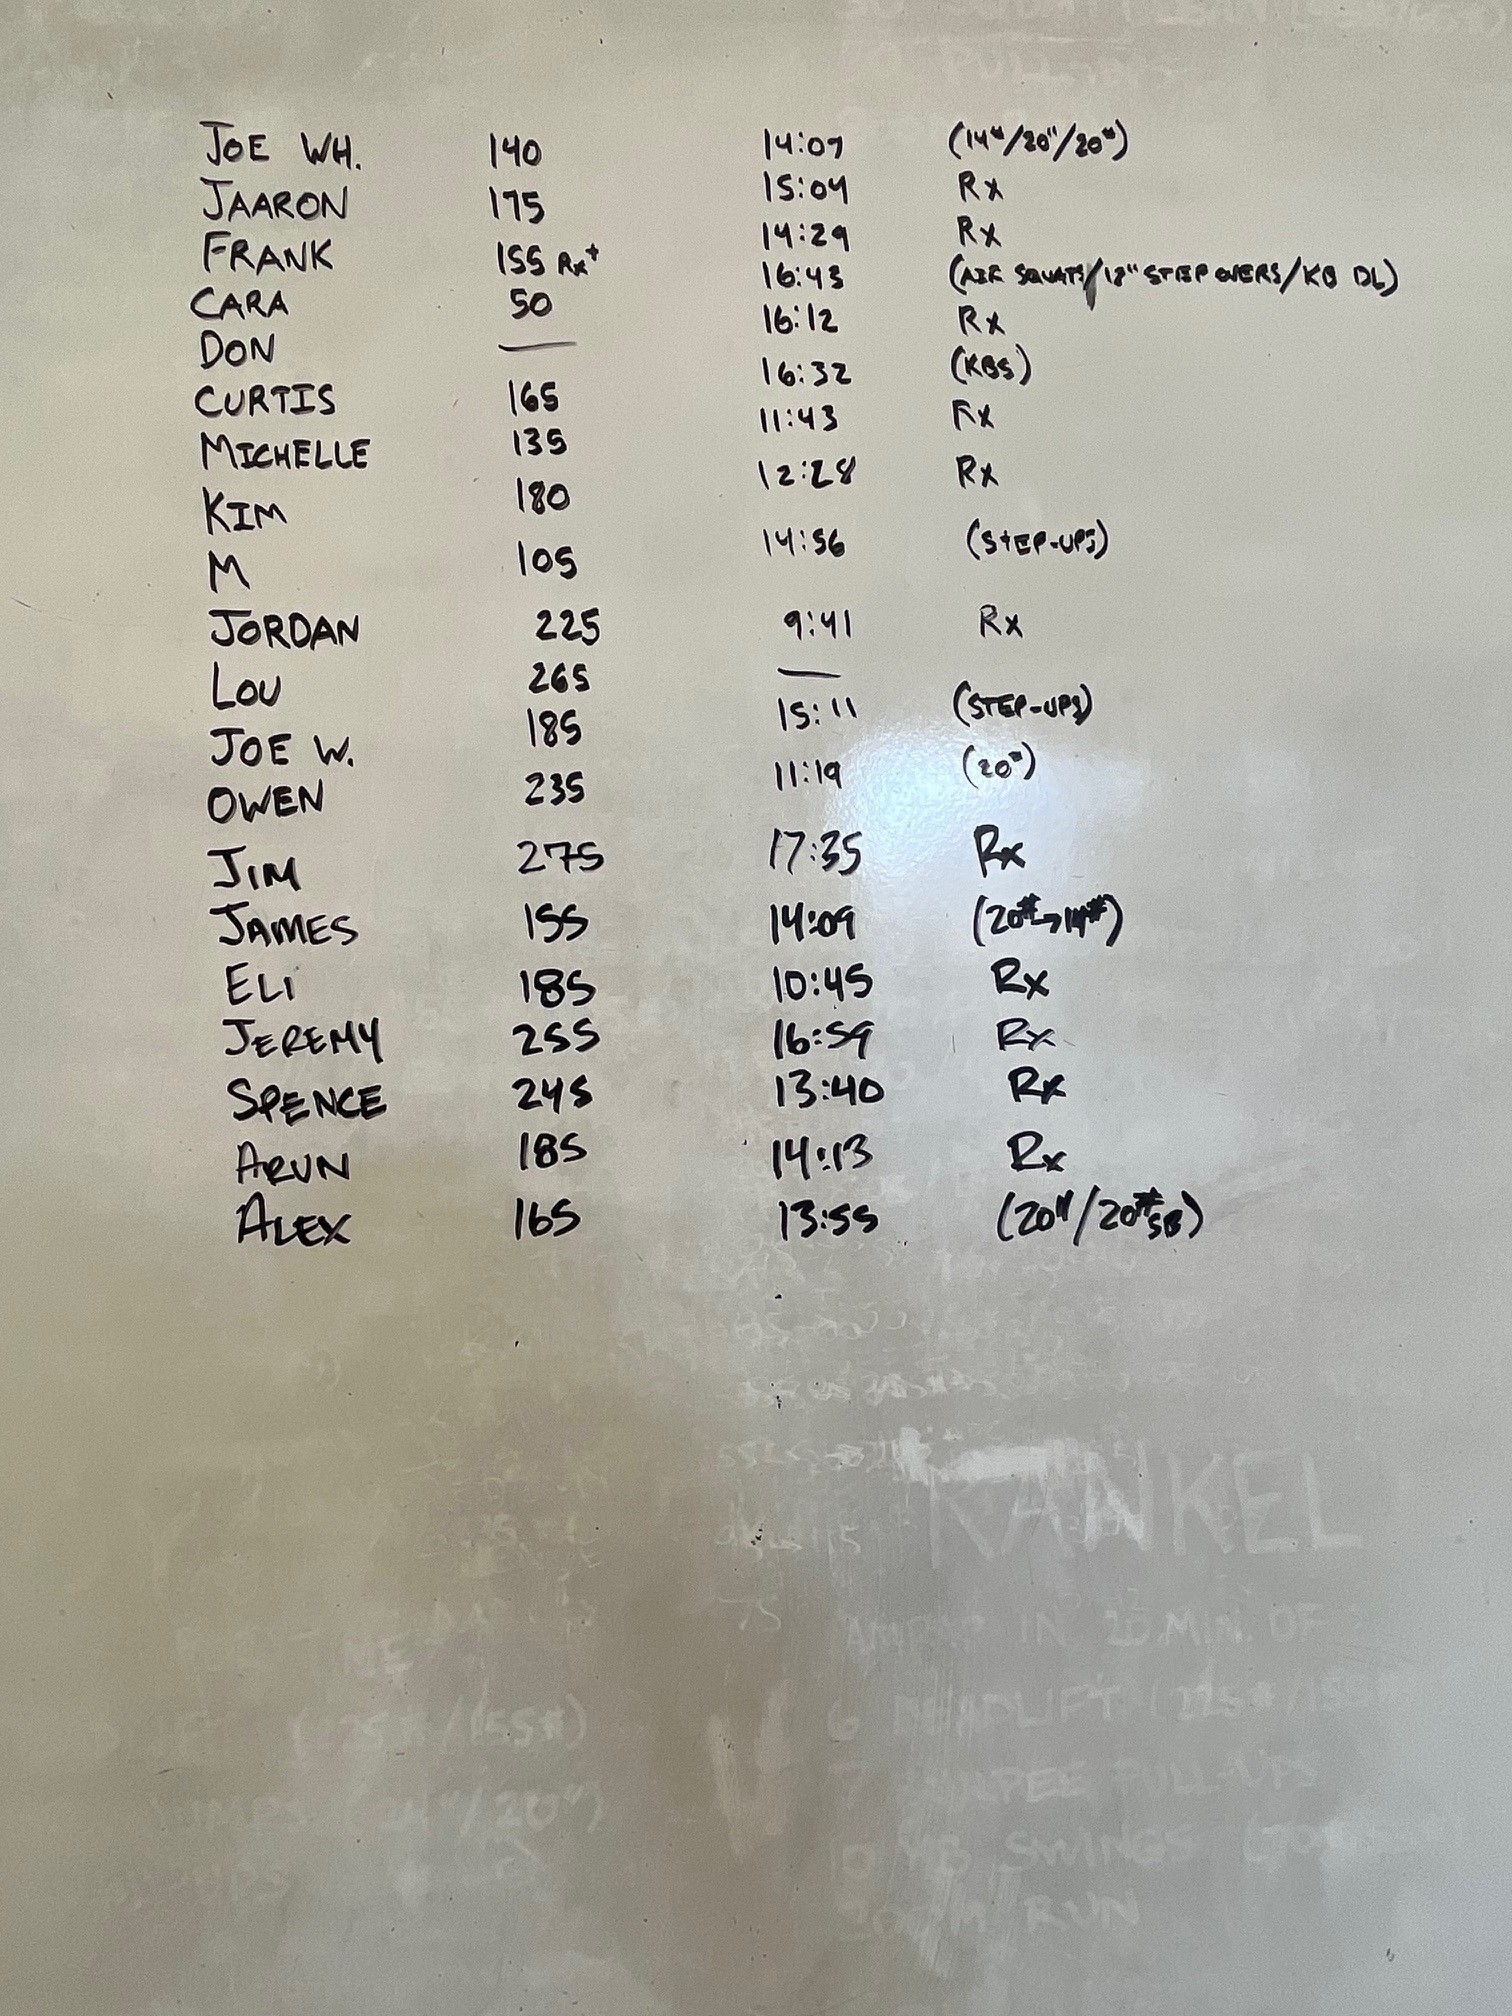 JOE WH. 140 14:07 (14#/20"/20#)
JAARON 175 15:04 Rx
FRANK 155 Rx+ 14:29 Rx
CARA 50 16:43 (AIR SQUATS/12" STEP OVERS/KB DL)
DON — 16:12 Rx
CURTIS 165 16:32 (KBS)
MICHELLE 135 11:43 Rx
KIM 180 12:28 Rx
M 105 14:56 (STEP-UPS)
JORDAN 225 9:41 Rx
LOU 265 —
JOE W. 185 15:11 (STEP-UPS)
OWEN 235 11:19 (20#)
JIM 275 17:35 Rx
JAMES 155 14:09 (20#→14#)
ELI 185 10:45 Rx
JEREMY 255 16:59 Rx
SPENCE 245 13:40 Rx
ARUN 185 14:13 Rx
ALEX 165 13:55 (20"/20# SB)
RANKEL
AMRAP IN 20 MIN. OF
6 DEADLIFT (225#/155
7 BURPEE PULL-UPS
10 KB SWINGS
200M RUN